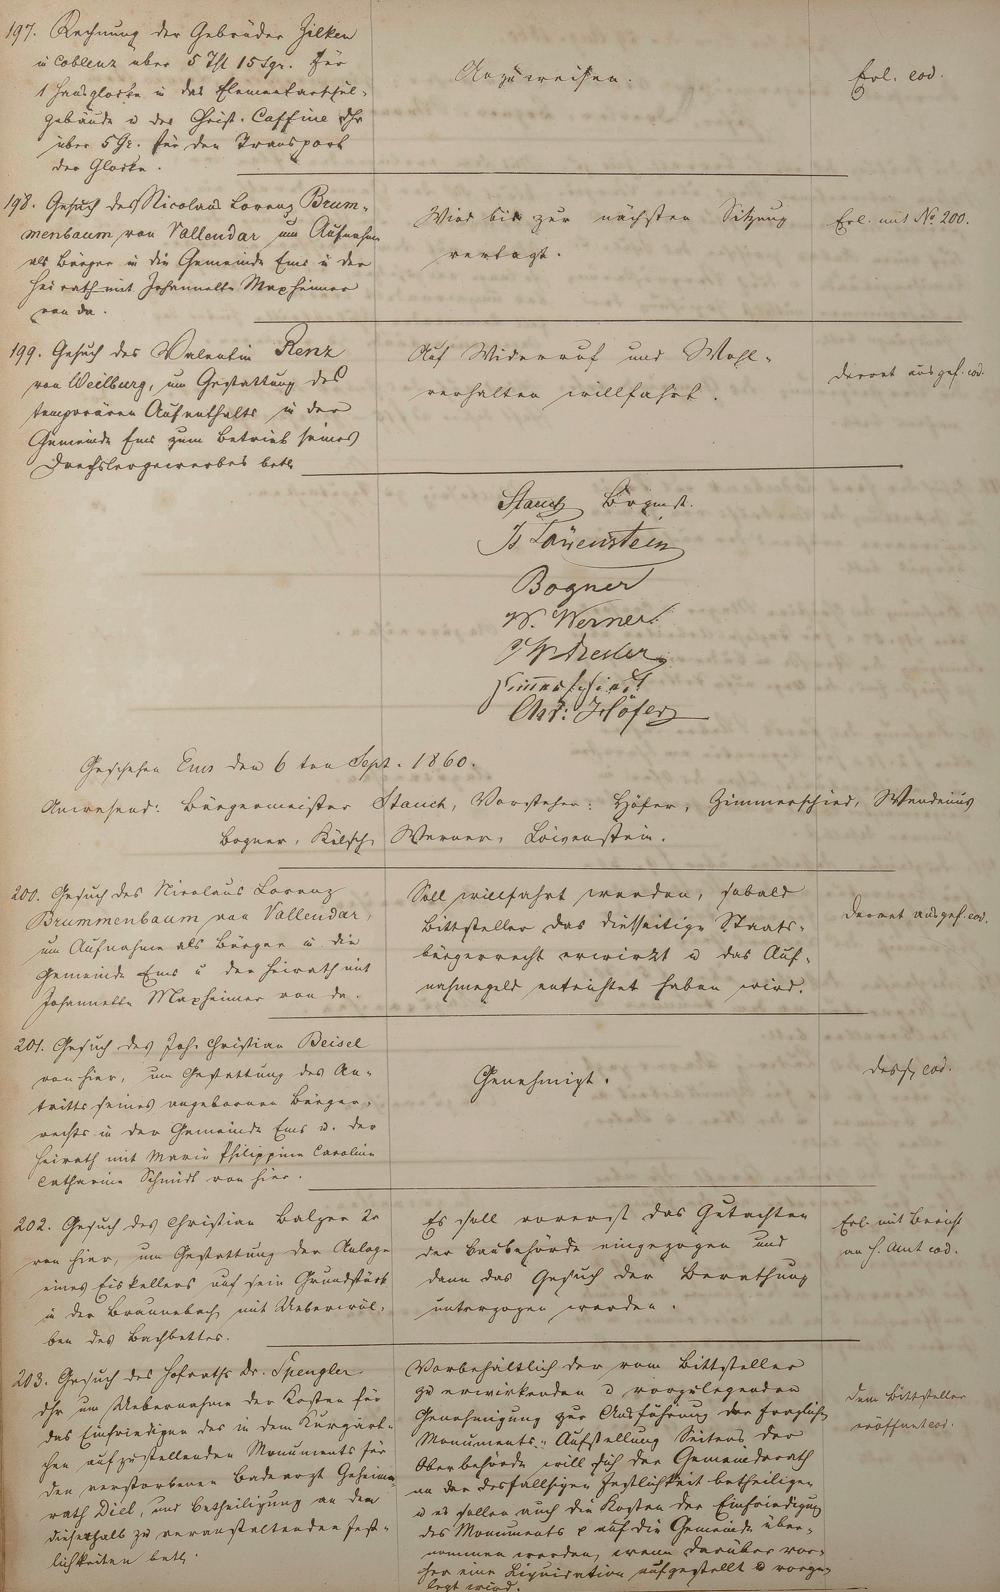 197. Rechnung der Gebrüder Zilken
in Coblenz über 5 Thl 15 Sgr. für
1 Hausglocke in das Elementarschul-
gebäude u der Christ. Caffine dhr
über 5 Gr. für den Transport
der Glocke.
Anzuweisen.
Erl. eod.
198. Gesuch des Nicolaus Lorenz Brum-
menbaum von Vallendar um Aufnahme
als Bürger in die Gemeinde Ems u der
Heirath mit Johannette Maxheimer
von da.
Wird bis zur nächsten Sitzung
vertagt.
Erl. mit No. 200.
199. Gesuch des Valentin Renz
von Weilburg, um Gestattung des
temporären Aufenthalts in der
Gemeinde Ems zum Betrieb seines
Drechslergewerbes betr.
Auf Widerruf und Wohl-
verhalten willfahrt.
Decret ausgef. eod.
Stauch Bürgmst.
Is Löwenstein
Bogner
W. Werner
Zimmerschied
Chr: Höfer
Geschehen Ems den 6 ten Sept. 1860.
Anwesend: Bürgermeister Stauch, Vorsteher: Höfer, Zimmerschied, Wendenius
Bogner, Kölsch, Werner, Löwenstein.
200. Gesuch des Nicolaus Lorenz
Brummenbaum von Vallendar,
um Aufnahme als Bürger in die
Gemeinde Ems u der Heirath mit
Johannette Maxheimer von da.
Soll willfahrt werden, sobald
Bittsteller das diesseitige Staats-
bürgerrecht erwirkt u das Auf-
nahmegeld entrichtet haben wird.
Decret ausgef. eod.
201. Gesuch des Joh. Christian Beisel
von hier, um Gestattung des An-
tritts seines angebornen Bürger-
rechts in der Gemeinde Ems u. der
Heirath mit Marie Philippine Caroline
Catharine Schmidt von hier.
Genehmigt.
Desgl. eod.
202. Gesuch des Christian Balzer 2r
von hier, um Gestattung der Anlage
eines Eiskellers auf sein Grundstück
in der Braunebach mit Ueberwöl-
ben des Bachbettes.
Es soll vorerst das Gutachten
der Baubehörde eingezogen und
dann das Gesuch der Berathung
unterzogen werden.
Erl. mit Bericht
an H. Amt eod.
203. Gesuch des Hofraths Dr. Spengler
dhr um Uebernahme der Kosten für
das Einfriedigen des in dem Kurgärt-
chen aufzustellenden Monuments für
den verstorbenen Badearzt Geheime-
rath Diel, und Betheiligung an den
dieserhalb zu veranstaltenden Fest-
lichkeiten betr.
Vorbehältlich der vom Bittsteller
zu erwirkenden u vorzulegenden
Genehmigung zur Ausführung der fraglichen
Monuments-Aufstellung Seitens der
Oberbehörde will sich der Gemeinderath
an der desfallsigen Festlichkeit betheiligen
u es sollen auch die Kosten der Einfriedigung
des Monuments p auf die Gemeinde über-
nommen werden, wenn darüber vor-
her eine Liquidation aufgestellt u vorge-
legt wird.
Dem Bittsteller
eröffnet eod.